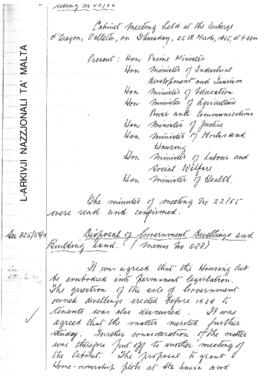 Cabinet Meeting held at the Auberge
d'Aragon, Valletta, on Thursday, 25th March, 1965, at
Present: Hon Prime Minister
Hon Minister of Industrial
development and Tourism
Hon Minister of Education
Hon Minister of Agriculture
Power and Communications
Hon Minister of Justice
Hon Minister of Works and
Housing
Hon Minister of Labour and
Social Welfare
Hon Minister of Health.
L-ARKIVJI NAZZJONALI TA' MALTA
The minutes of meeting No 22/65
were read and confirmed.
Disposal of Government Dwellings and
Building Land. (Memo No 228)
It was agreed that the Housing Act
be embodied into permanent legislation.
The question of the sale of Government
owned dwellings erected before 19 to
tenants was also discussed. It was
agreed that the matter merited further
study. Further consideration of the matter
was therefore put off to another meeting of
the Cabinet. The proposal to grant
home-ownership plots at Sta Lucia and